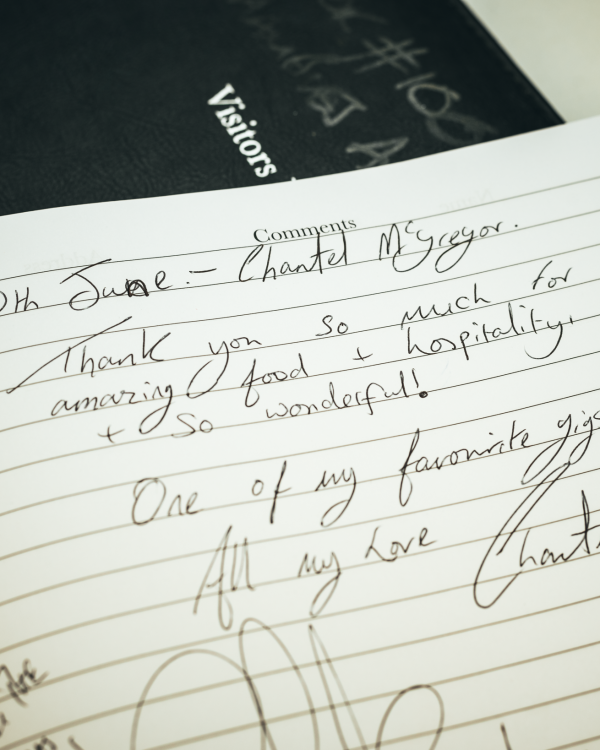 #10
Visitors
Comments
0th June :- Chantel McGregor.
Thank you so much for
amazing food + hospitality,
+ so wonderful!
One of my favourite gigs
All my Love Chant